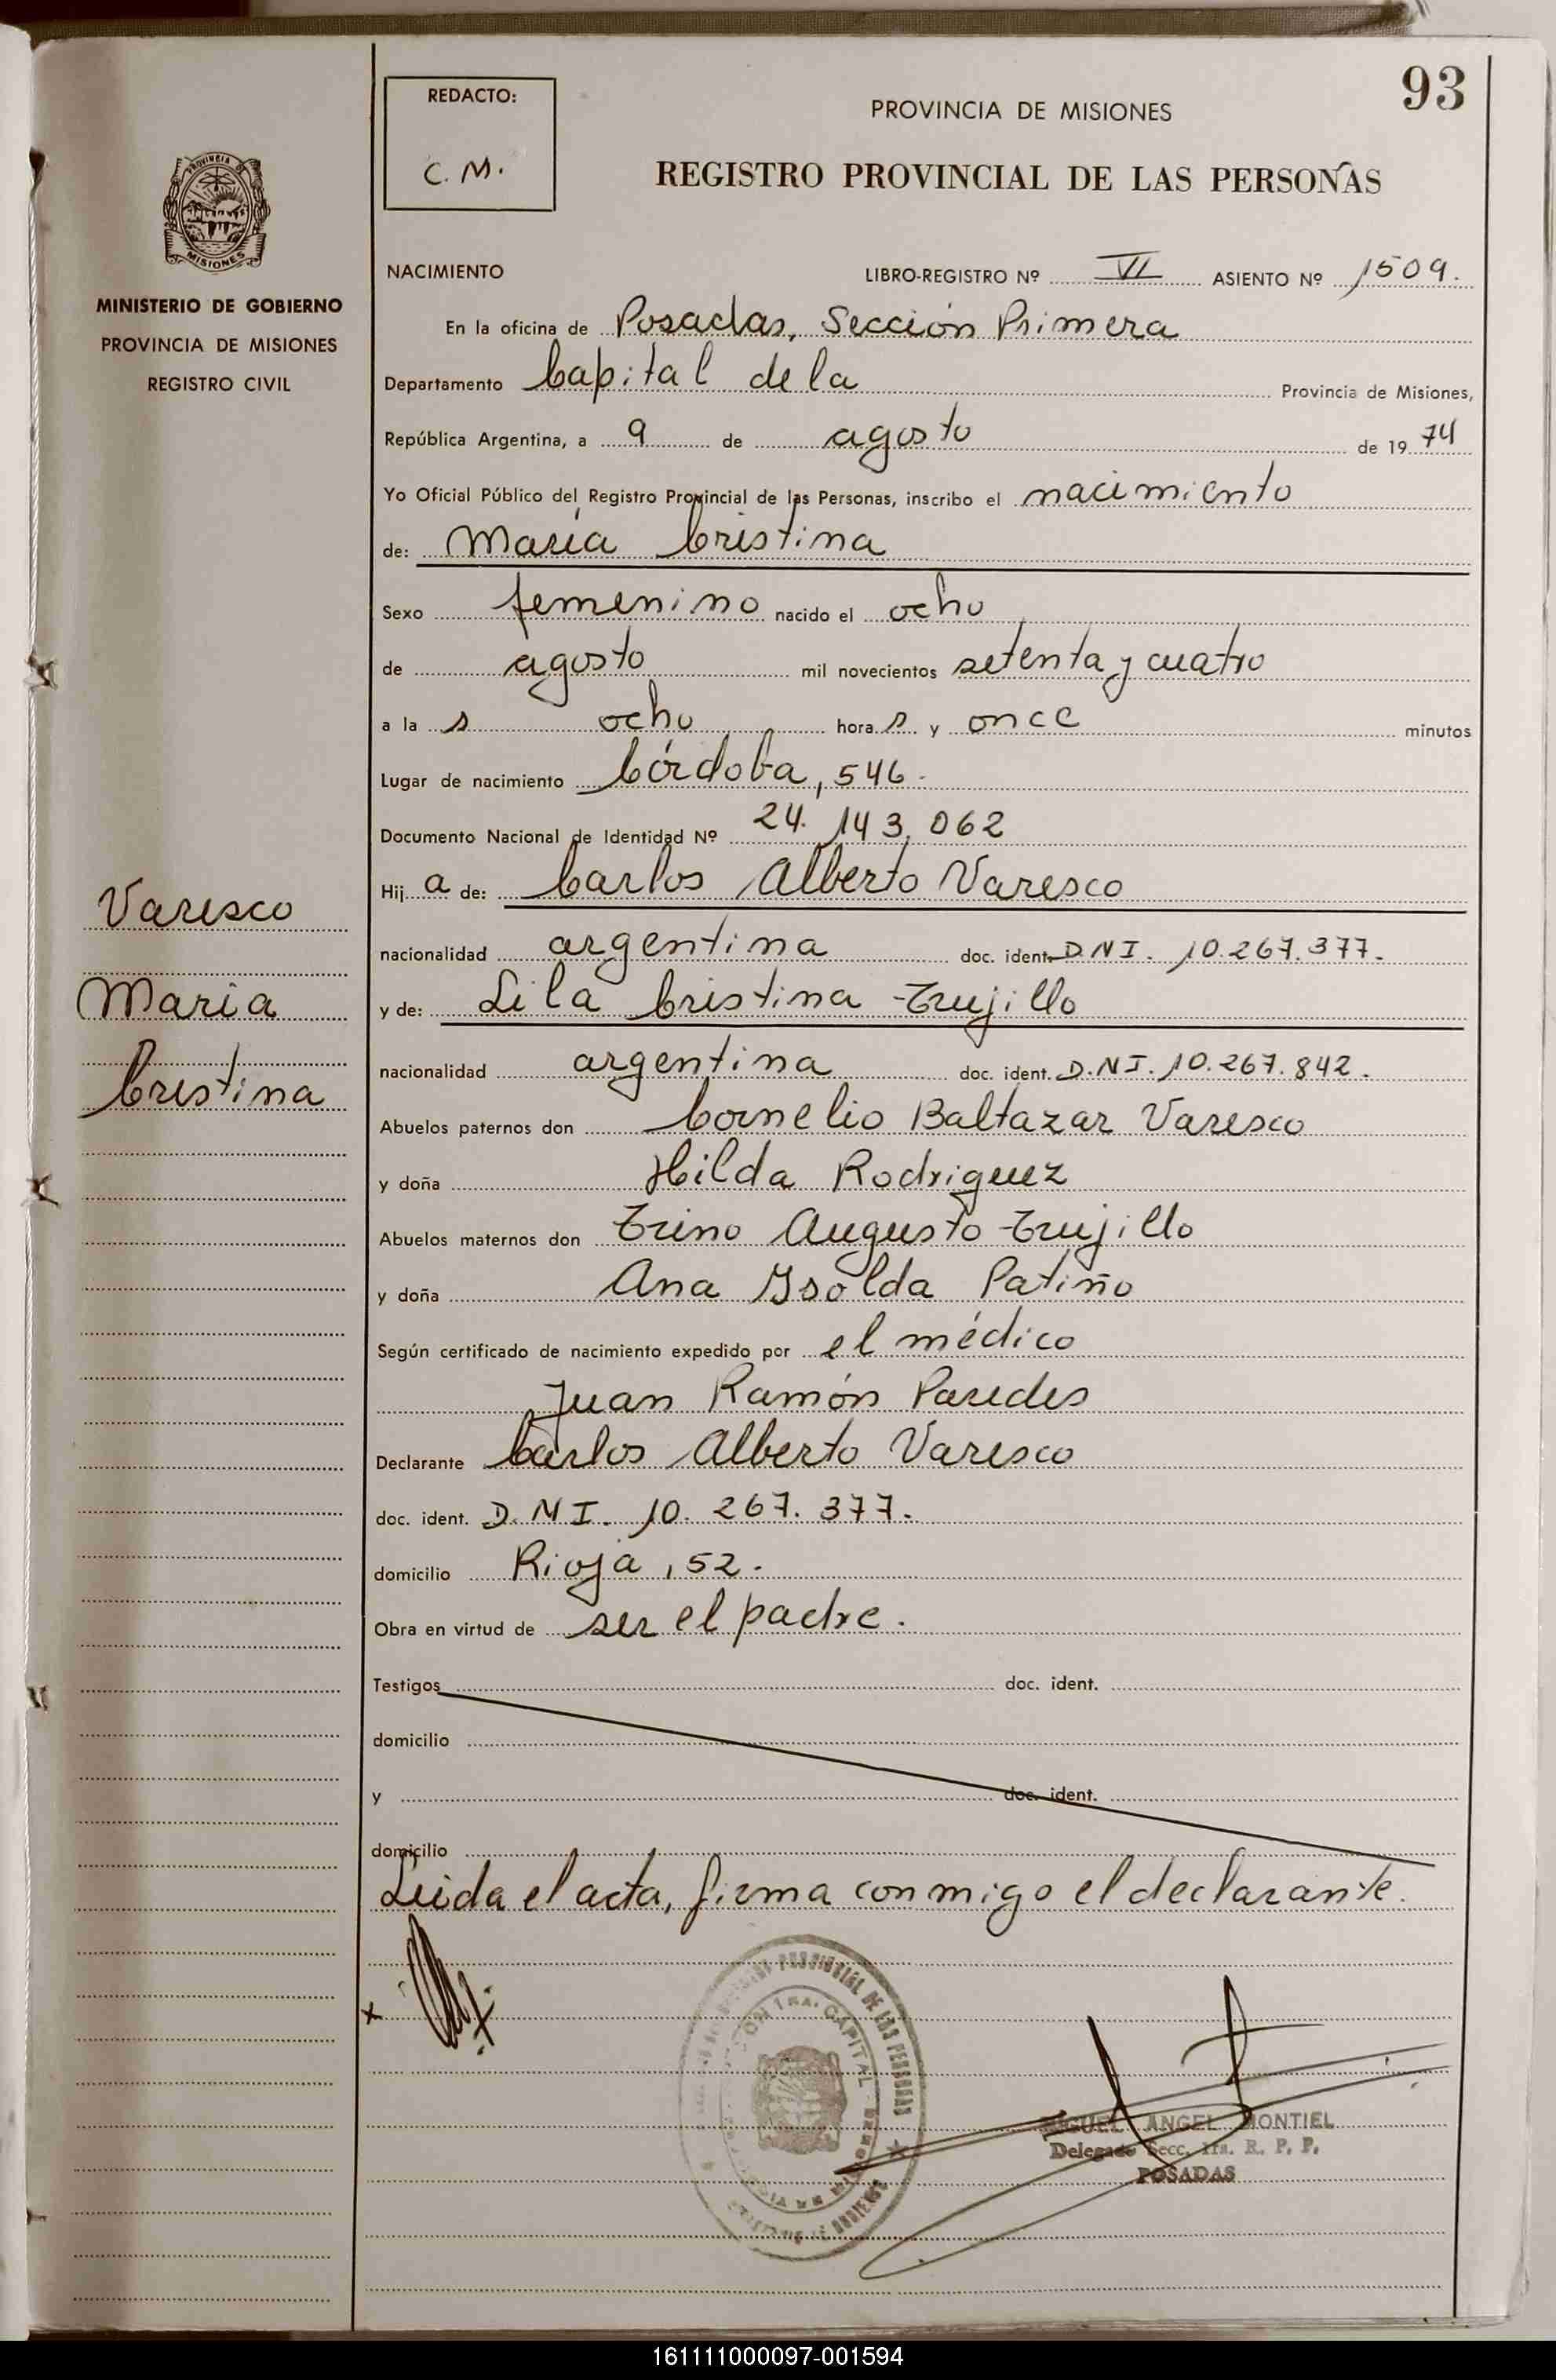 93
REDACTO:
C. M.
PROVINCIA DE MISIONES
REGISTRO PROVINCIAL DE LAS PERSONAS
PROVINCIA DE
MISIONES
MINISTERIO DE GOBIERNO
PROVINCIA DE MISIONES
REGISTRO CIVIL
Varesco
Maria
Cristina
NACIMIENTO LIBRO-REGISTRO Nº VI ASIENTO Nº 1509.
En la oficina de Posadas, Sección Primera
Departamento Capital de la Provincia de Misiones,
República Argentina, a 9 de agosto de 1974
Yo Oficial Público del Registro Provincial de las Personas, inscribo el nacimiento
de: María Cristina
Sexo femenino nacido el ocho
de agosto mil novecientos setenta y cuatro
a la s ocho hora s y once minutos
Lugar de nacimiento Córdoba, 546.
Documento Nacional de Identidad Nº 24.143.062
Hij a de: Carlos Alberto Varesco
nacionalidad argentina doc. ident. D.N.I. 10.267.377.
y de: Lila Cristina Trujillo
nacionalidad argentina doc. ident. D.N.I. 10.267.842.
Abuelos paternos don Cornelio Baltazar Varesco
y doña Hilda Rodriguez
Abuelos maternos don Trino Augusto Trujillo
y doña Ana Isolda Patiño
Según certificado de nacimiento expedido por el médico
Juan Ramón Paredes
Declarante Carlos Alberto Varesco
doc. ident. D.N.I. 10.267.377.
domicilio Rioja, 52.
Obra en virtud de ser el padre.
Testigos doc. ident.
domicilio
y doc. ident.
domicilio
Leida el acta, firma conmigo el declarante.
x
PROVINCIAL DE LAS PERSONAS
1RA. CAPITAL
MIGUEL ANGEL MONTIEL
Delegado Secc. 1ra. R. P. P.
POSADAS
161111000097-001594